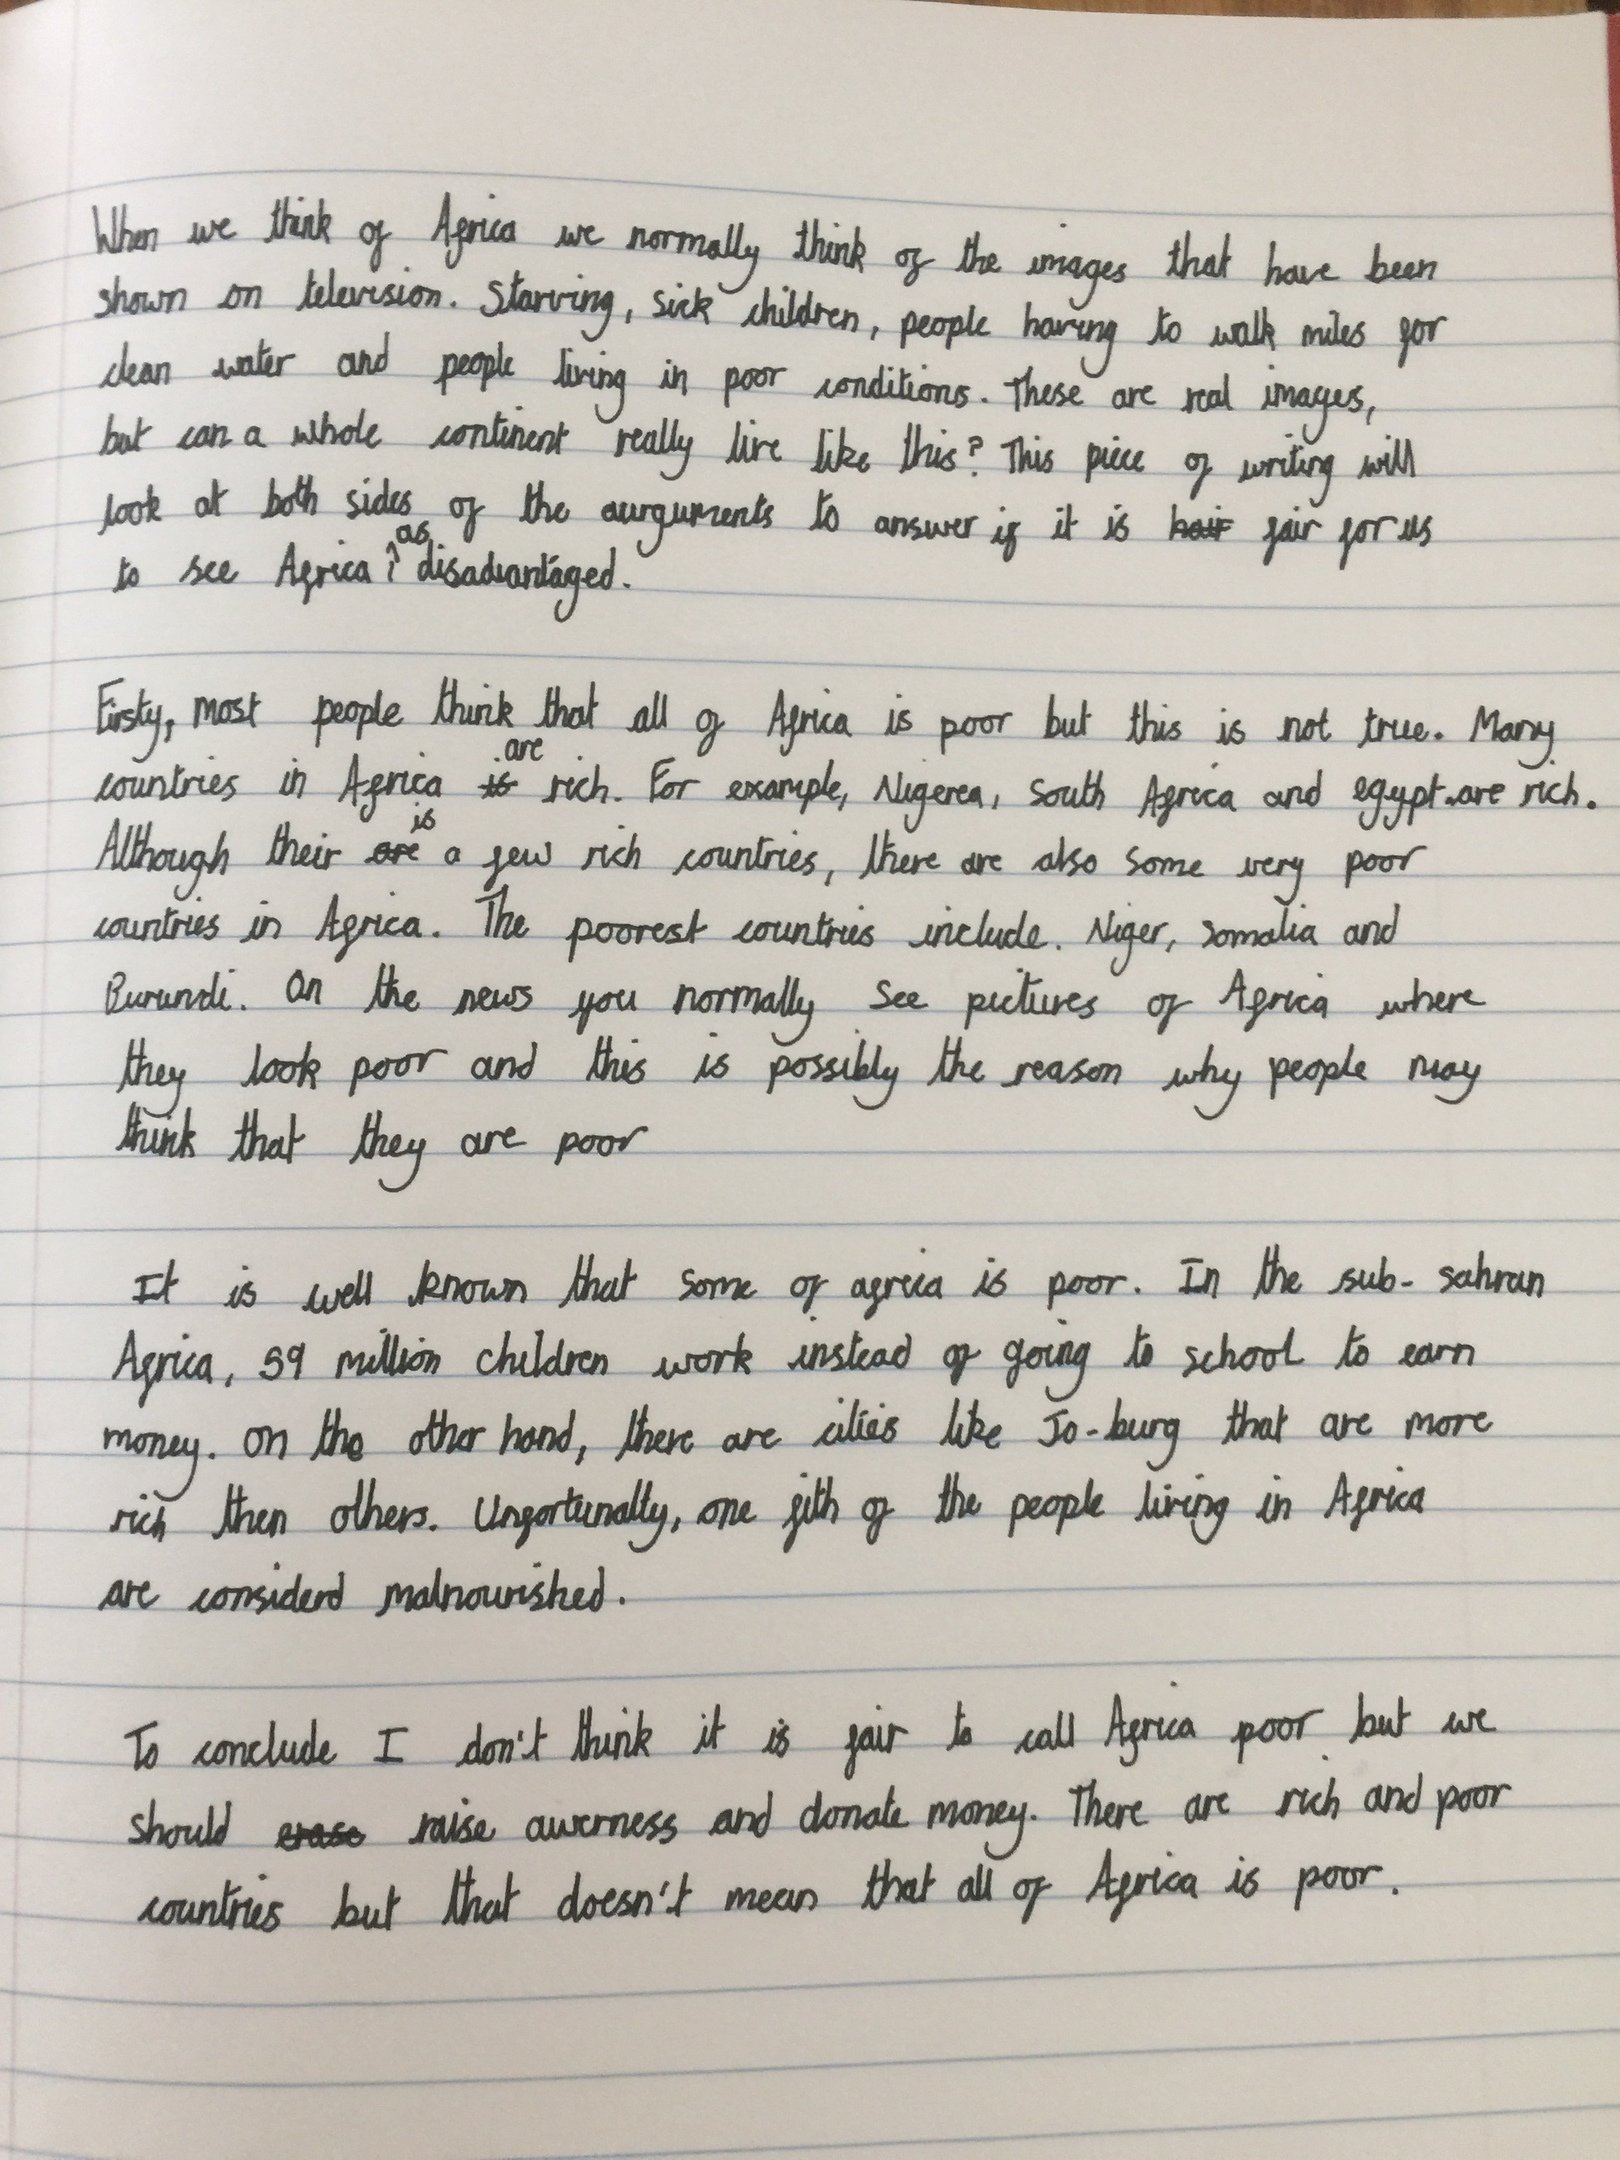 When we think of Africa we normally think of the images that have been
shown on television. Starving, sick children, people having to walk miles for
clean water and people living in poor conditions. These are real images,
but can a whole continent really live like this? This piece of writing will
look at both sides of the aurguments to answer if it is hair fair for us
to see Africa as disadvantaged.
Firsty, most people think that all of Africa is poor but this is not true. Many
countries in Africa is are rich. For example, Nigerea, South Africa and egypt are rich.
Although their are is a few rich countries, there are also some very poor
countries in Africa. The poorest countries include. Niger, Somalia and
Burundi. On the news you normally see pictures of Africa where
they look poor and this is possibly the reason why people may
think that they are poor
It is well known that some of africa is poor. In the sub-sahran
Africa, 59 million children work instead of going to school to earn
money. On the other hand, there are cities like Jo-burg that are more
rich then others. Unfortunally, one fith of the people living in Africa
are considerd malnourished.
To conclude I don't think it is fair to call Africa poor but we
should erase raise awerness and donate money. There are rich and poor
countries but that doesn't mean that all of Africa is poor.